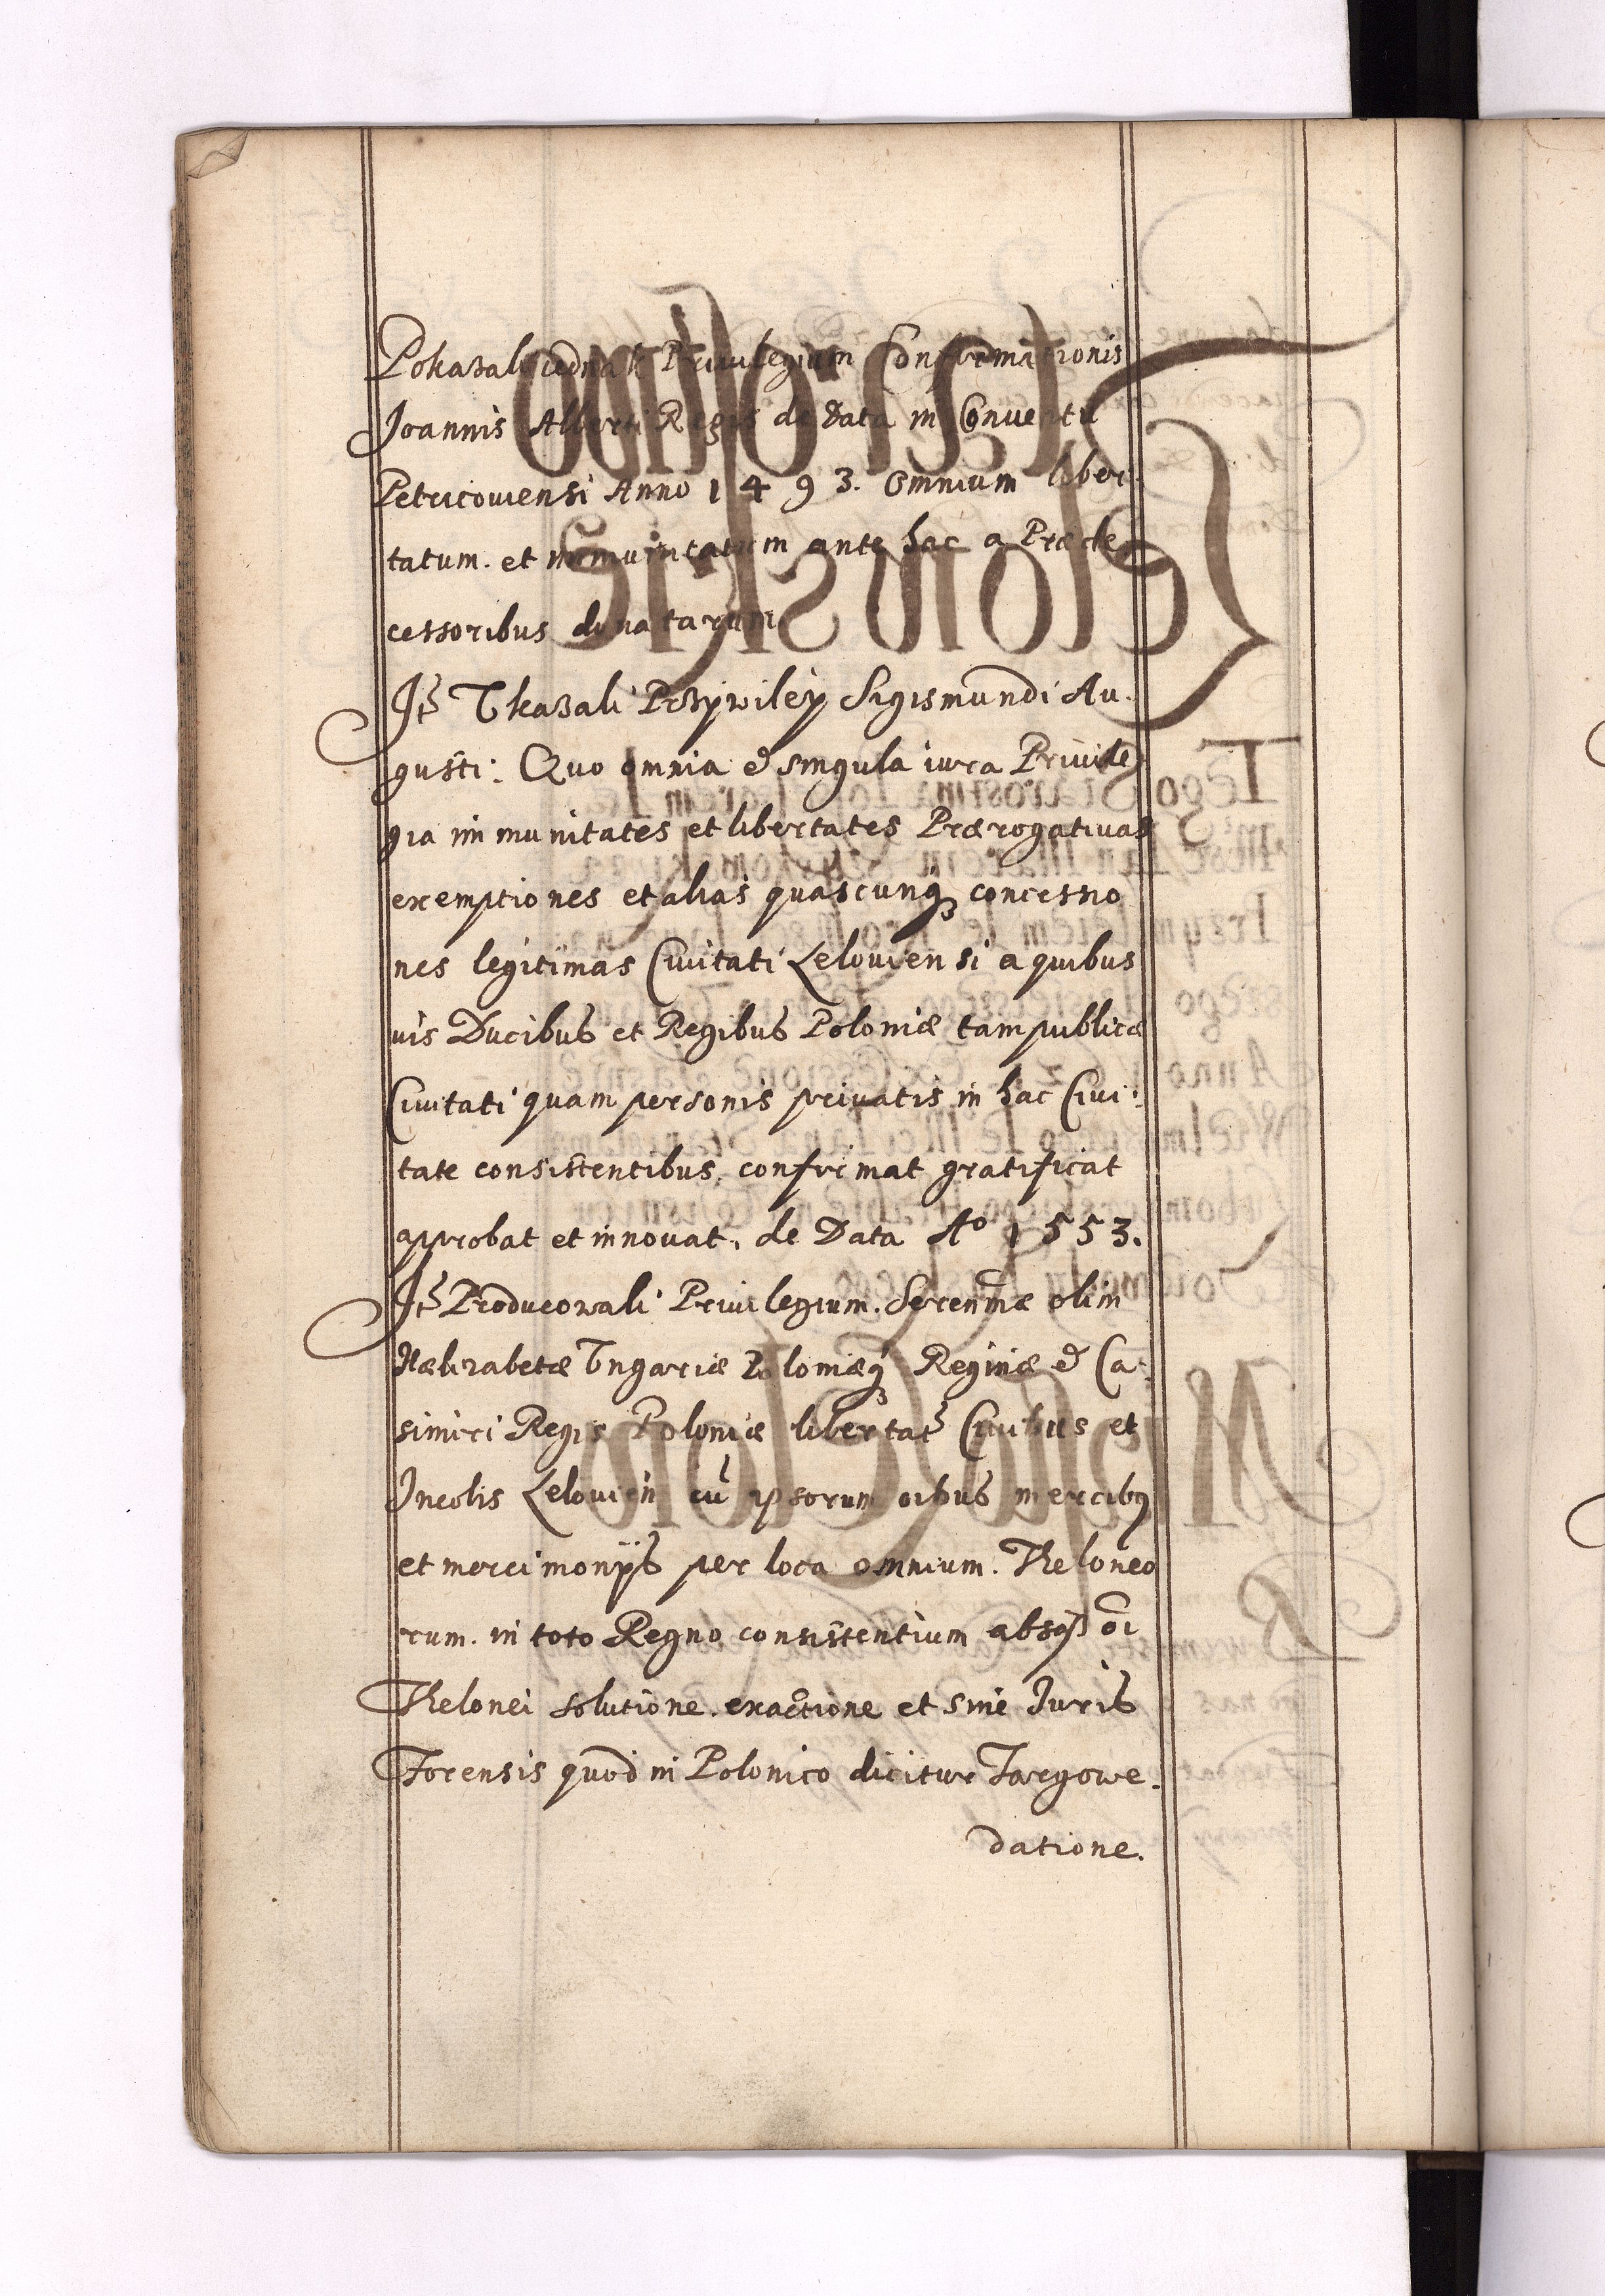 Pokazali iednak Priuilegium Confirmationis
Joannis Alberti Regis de data in Conuentu
Petricouiensi Anno 1493. Omnium liber:
tatum. et immunitatum ante hac a Præde
cessoribus donatarum
Itẽ Vkazali Przywiley Sigismundi Au:
gusti: Quo omnia & singula iura Priuile
gia immunitates et libertates Prærogatiuas
exemptiones et alias quascunq₃ concessio
nes legitimas Ciuitati Leloviensi a quibus
uis Ducibus et Regibus Poloniæ tam publicæ
Ciuitati quam personis priuatis in hac Ciui:
tate consistentibus, confirmat gratificat
approbat et innouat, de Data Aº 1553.
Itẽ Producowali Priuilegium. Serenmæ olim
Hælizabetæ Vngariæ Poloniæq₃ Reginæ & Ca:
simiri Regis Poloniæ libertatẽ Ciuibus et
Incolis Lelouien̄ cū ipsorum oibus mercibq
et mercimonijs per loca omnium. Theloneo
rum. in toto Regno consistentium absq₃ oi
Thelonei solutione. exactione et sine Juris
Forensis quod in Polonico dicitur Targowe.
datione.